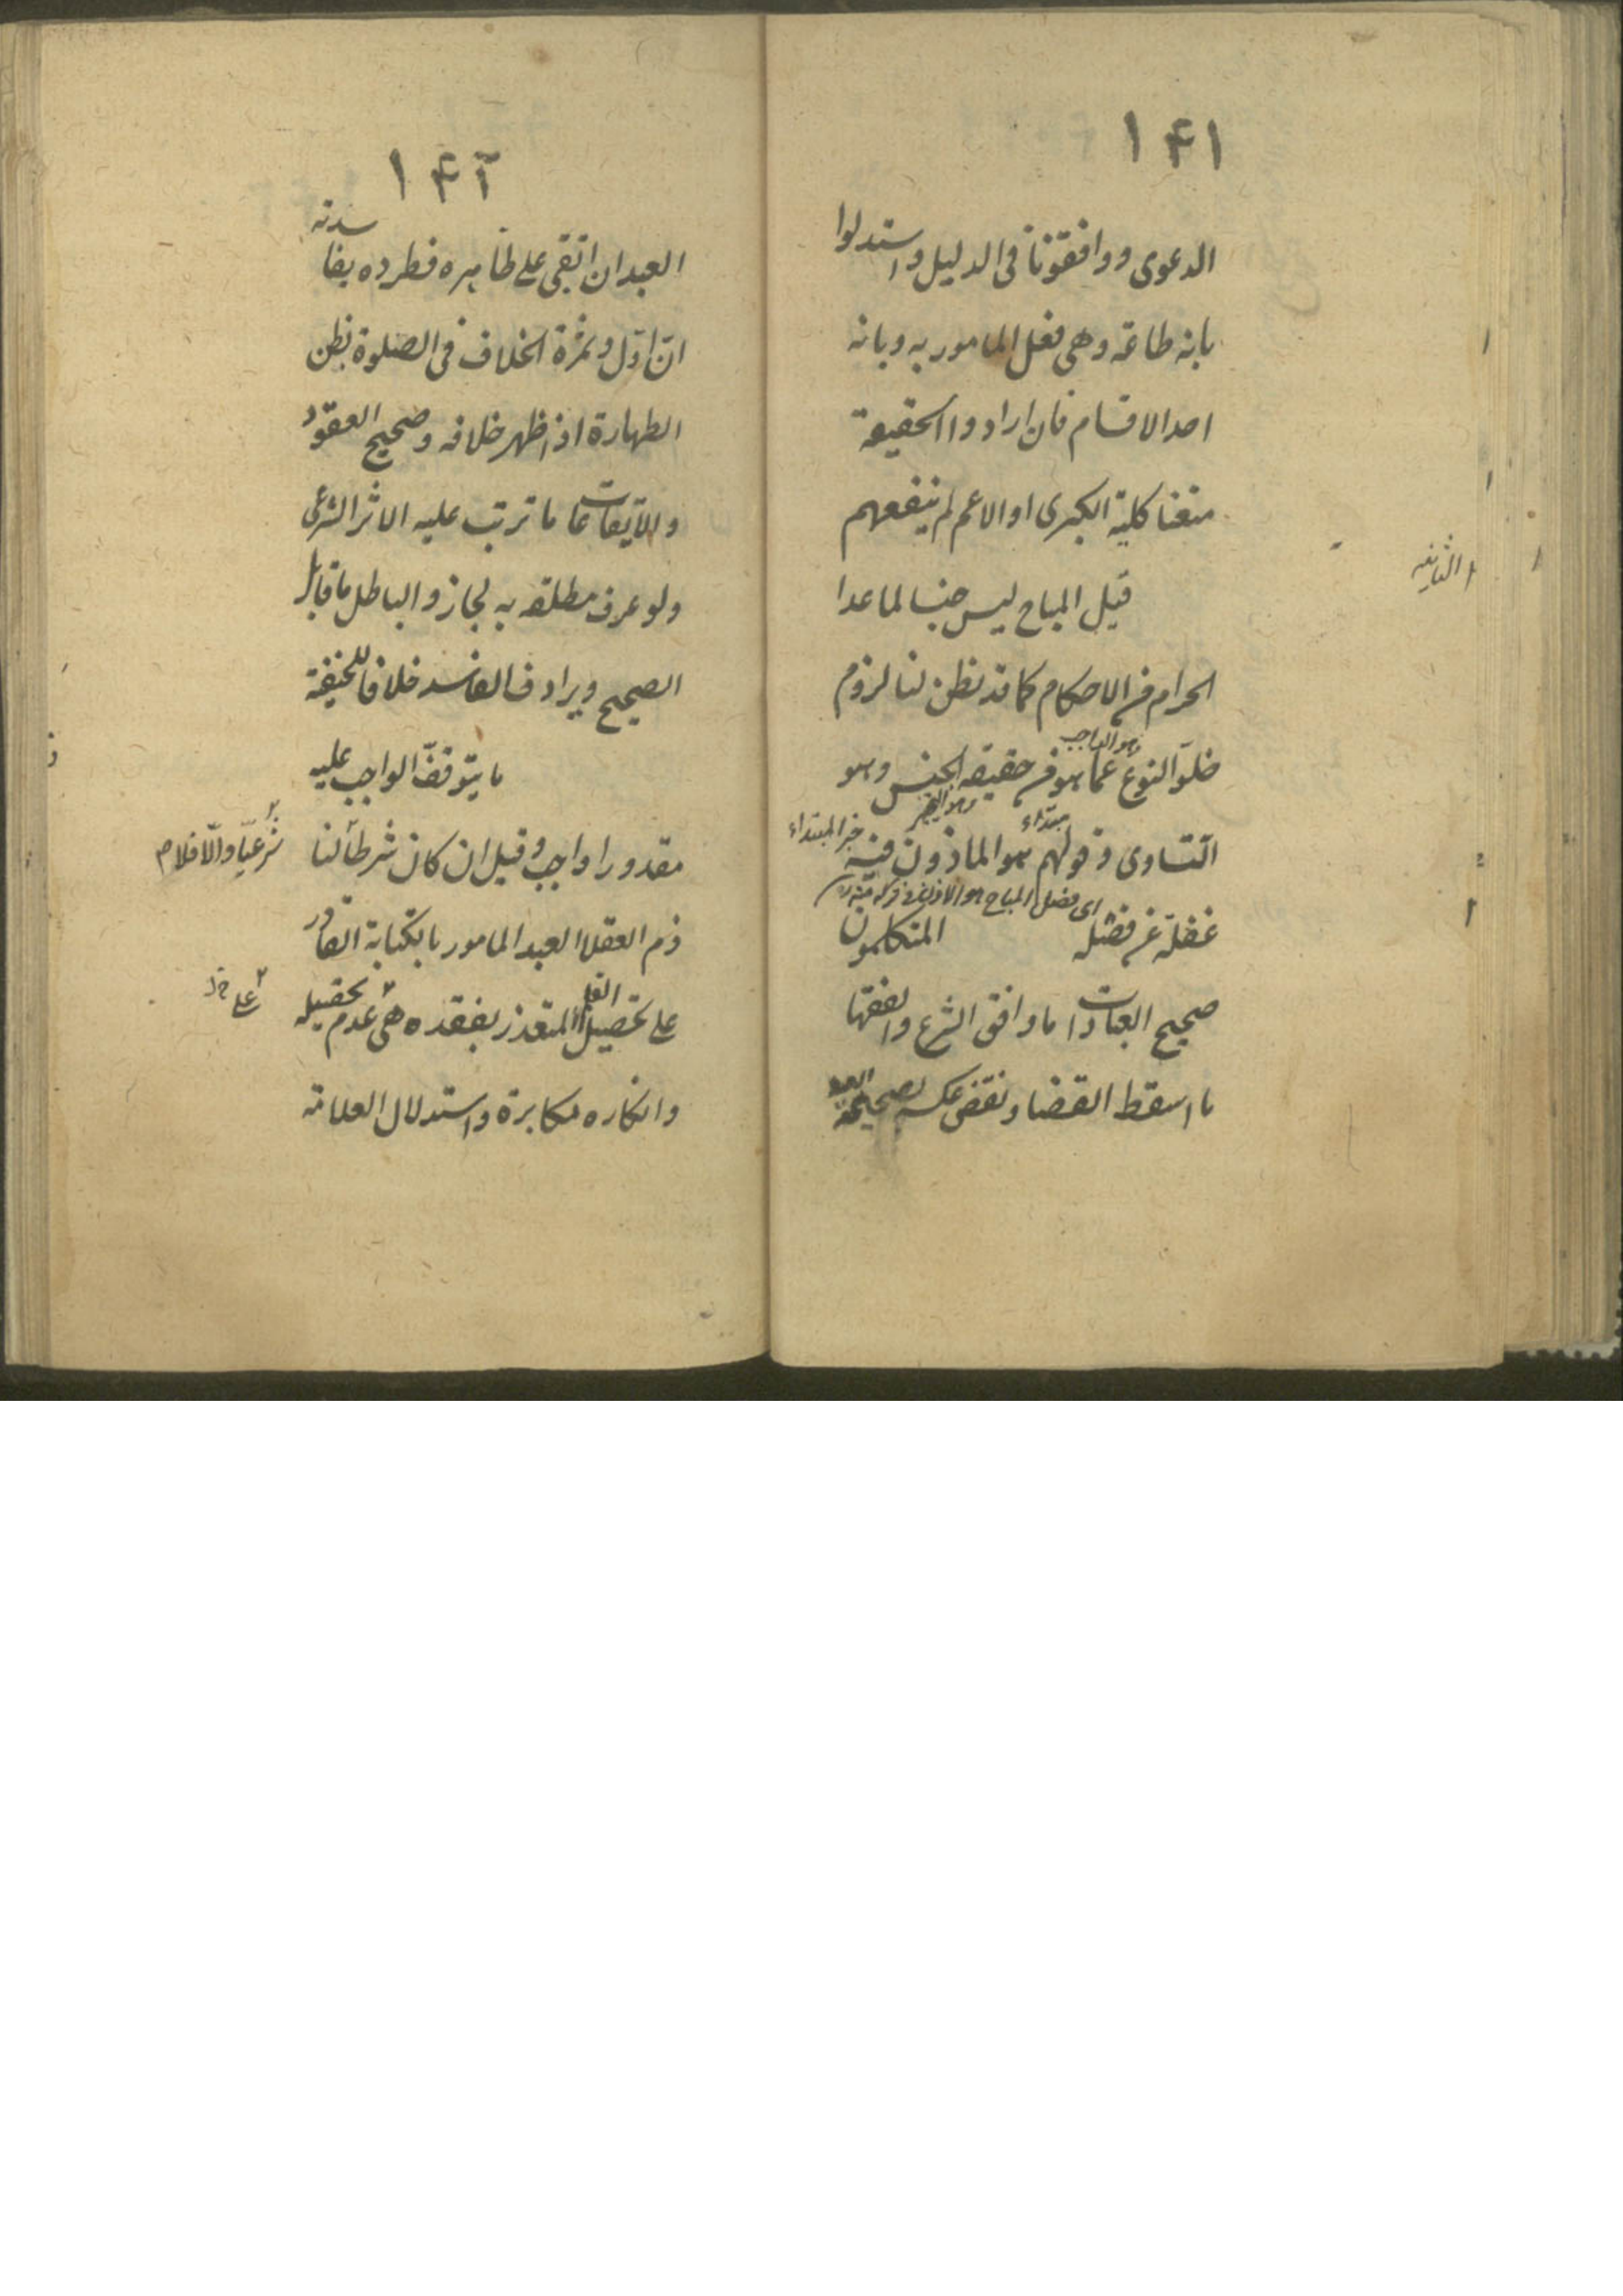 ۱۴۱
الدعوى ووافقونا فى الدليل واستدلوا
بانه طاعة وهى فعل المامور به وبانه
احد الاقسام فان ارادوا الحقيقة
منعنا كلية الكبرى او الاعم لم ينفعهم
قيل المباح ليس جنسا لما عدا
الحرام من الاحكام كما قد يظن لنا لزوم
وهو الواجب
خلوّ النوع عما هو فى حقيقة الجنس وهو
مبتداء
خبر المبتداء
التساوى وقولهم هو الماذون فيه
اى فصل المباح هو الاذن فى تركه منه
غفلة عن فصله المتكلمون
صحيح العبادات ما وافق الشرع والفقها
ما اسقط القضا ونقض عكسه بصحيحة العيد
۱۴۲
العيد ان ابقى على ظاهره فطرده بفاسدته
ان اوّل وثمرة الخلاف فى الصلوة بظن
الطهارة اذا ظهر خلافه وصحيح العقود
والايقاعات ما ترتب عليه الاثر الشرعى
ولو عرف مطلقه به لجاز والباطل ما قابل
الصحيح ويرادف الفاسد خلافا للحنفية
ما يتوقف الواجب عليه
مقدورا واجب وقيل ان كان شرطا لنا
شرعيّا والّا فلا م
ذم العقلا العبد المامور بالكتابة القادر
على تحصيل القلم المتعذر بفقده هى عدم تحصيله
وانكاره مكابرة واستدلال العلامة